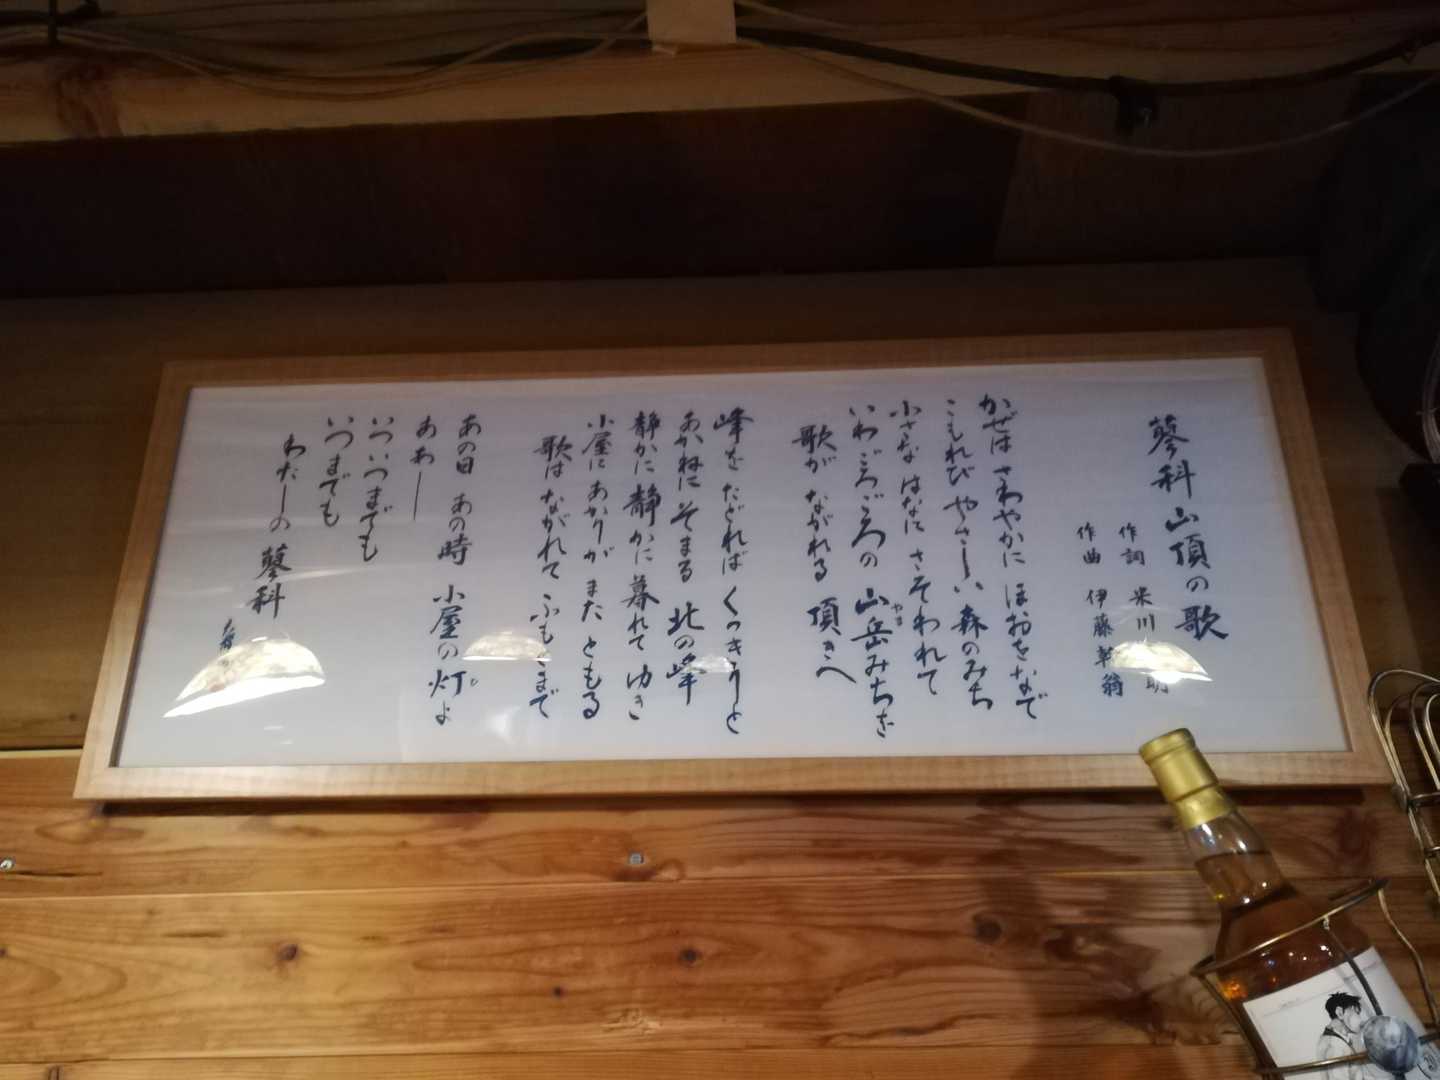 蓼科山頂の歌
作詞 米川 明
作曲 伊藤幹翁
かぜは さわやかに ほおをなで
こもれび やさしい 森のみち
小さな はなに さそわれて
いわごろごろの 山岳みちを
やま
歌が ながれる 頂きへ
峰を たどれば くっきりと
あかねに そまる 北の峰
静かに 静かに 暮れて ゆき
小屋に あかりが また ともる
歌は ながれて ふもとまで
あの日 あの時 小屋の灯よ
ひ
ああ―
いついつまでも
いつまでも
わたしの 蓼科